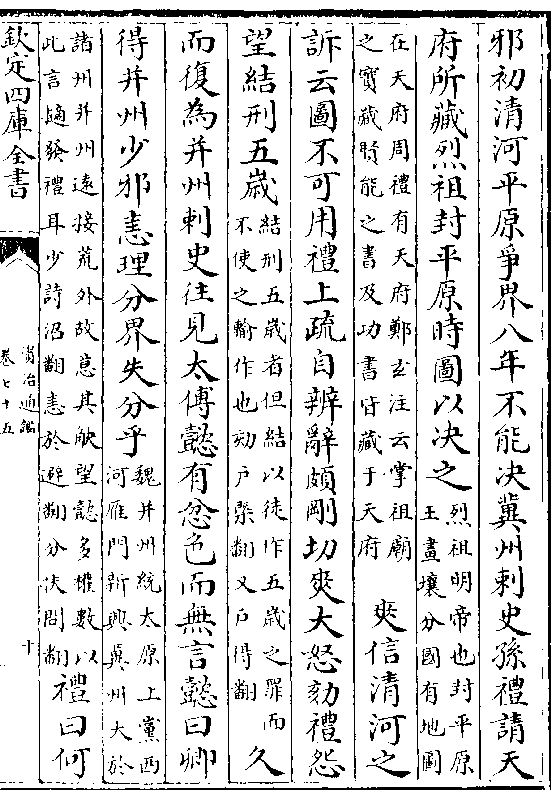 邪初清河平原爭界八年不能決冀州刺史孫禮請天
府所藏烈祖封平原時圖以決之烈祖明帝也封平原
王畫壤分國有地圖
在天府周禮有天府鄭𤣥注云掌祖廟
之寶藏賢能之書及功書皆藏于天府爽信清河之
訴云圖不可用禮上疏自辨辭頗剛切爽大怒劾禮怨
望結刑五歲結刑五歲者但結以徒作五歲之罪而
不使之輸作也劾戶槩翻又戶得翻久
而復為并州刺史往見太傅懿有忿色而無言懿曰卿
得并州少邪恚理分界失分乎魏并州統太原上黨西
河雁門新興冀州大於
諸州并州遠接荒外故意其觖望懿多權數以
此言擿發禮耳少詩沼翻恚於避翻分扶問翻禮曰何
欽定四庫全書
資治通鑑
卷七十五
十